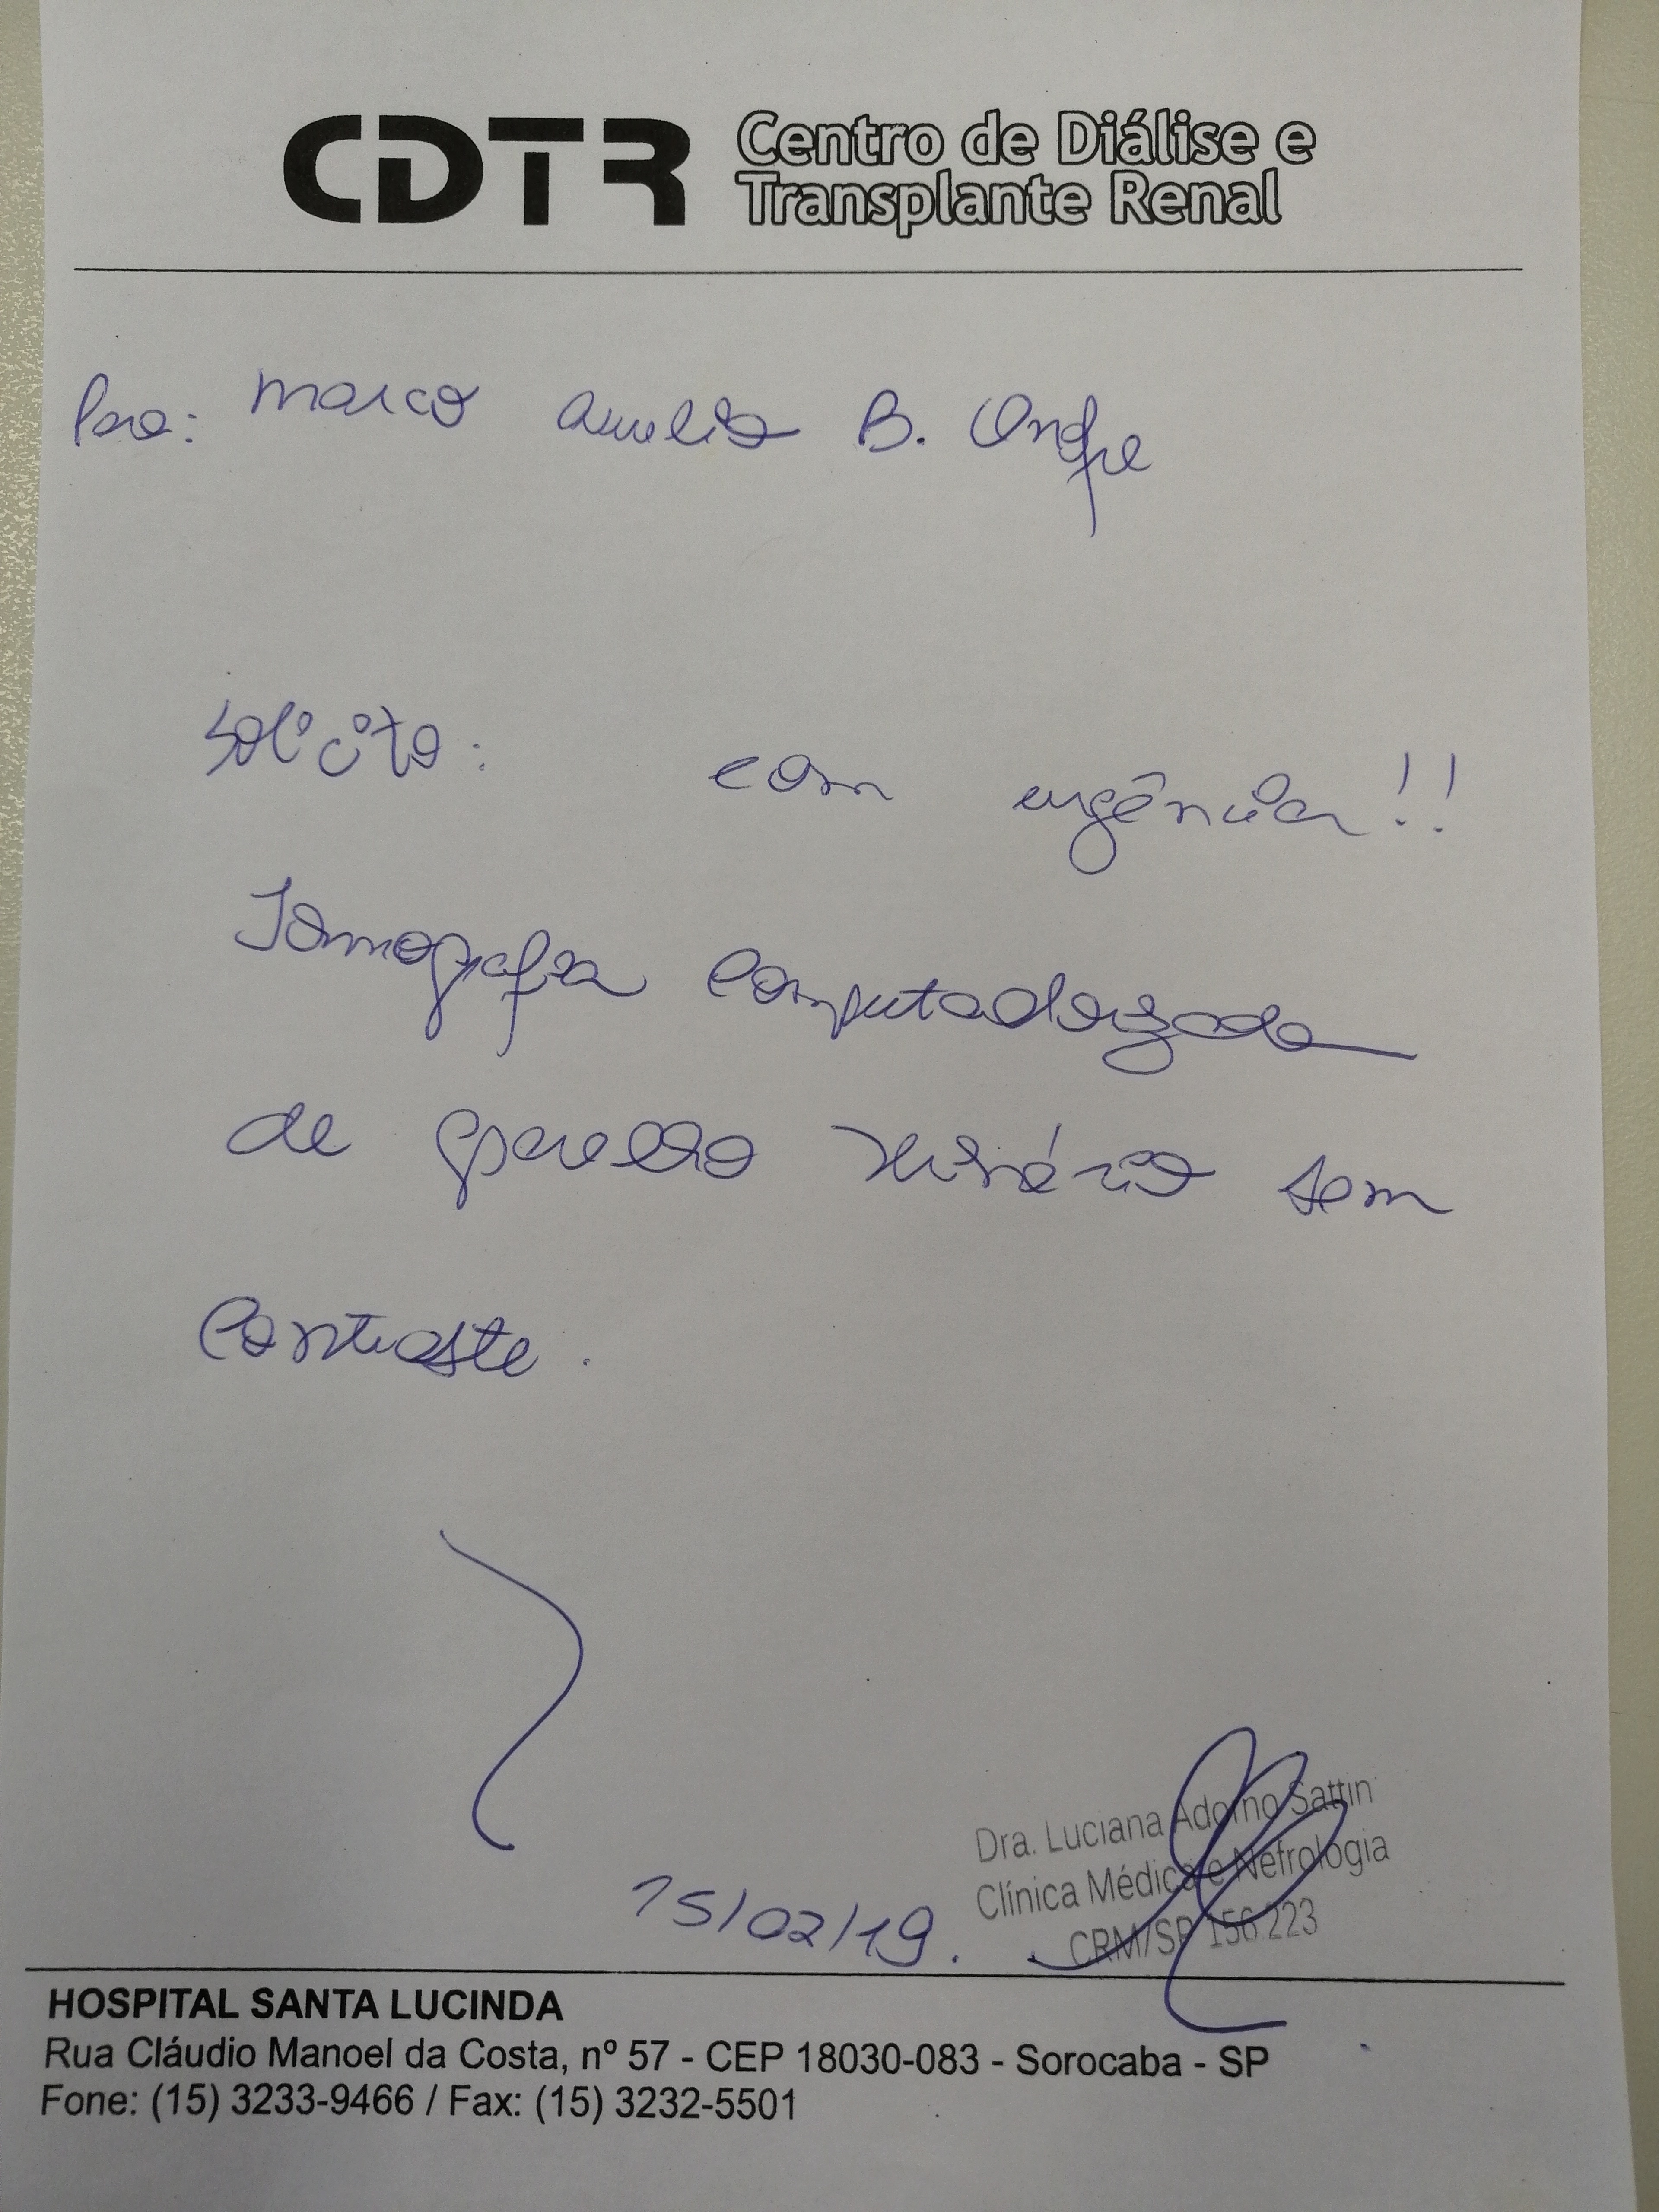 CDTR Centro de Diálise e
Transplante Renal
Para: Marco Aurelio B. Onofre
Solicito: com urgência!!
Tomografia Computadorizada
de aparelho urinário sem
Contraste.
15/02/19.
Dra. Luciana Adorno Sattin
Clínica Médica e Nefrologia
CRM/SP 156.223
HOSPITAL SANTA LUCINDA
Rua Cláudio Manoel da Costa, nº 57 - CEP 18030-083 - Sorocaba - SP
Fone: (15) 3233-9466 / Fax: (15) 3232-5501